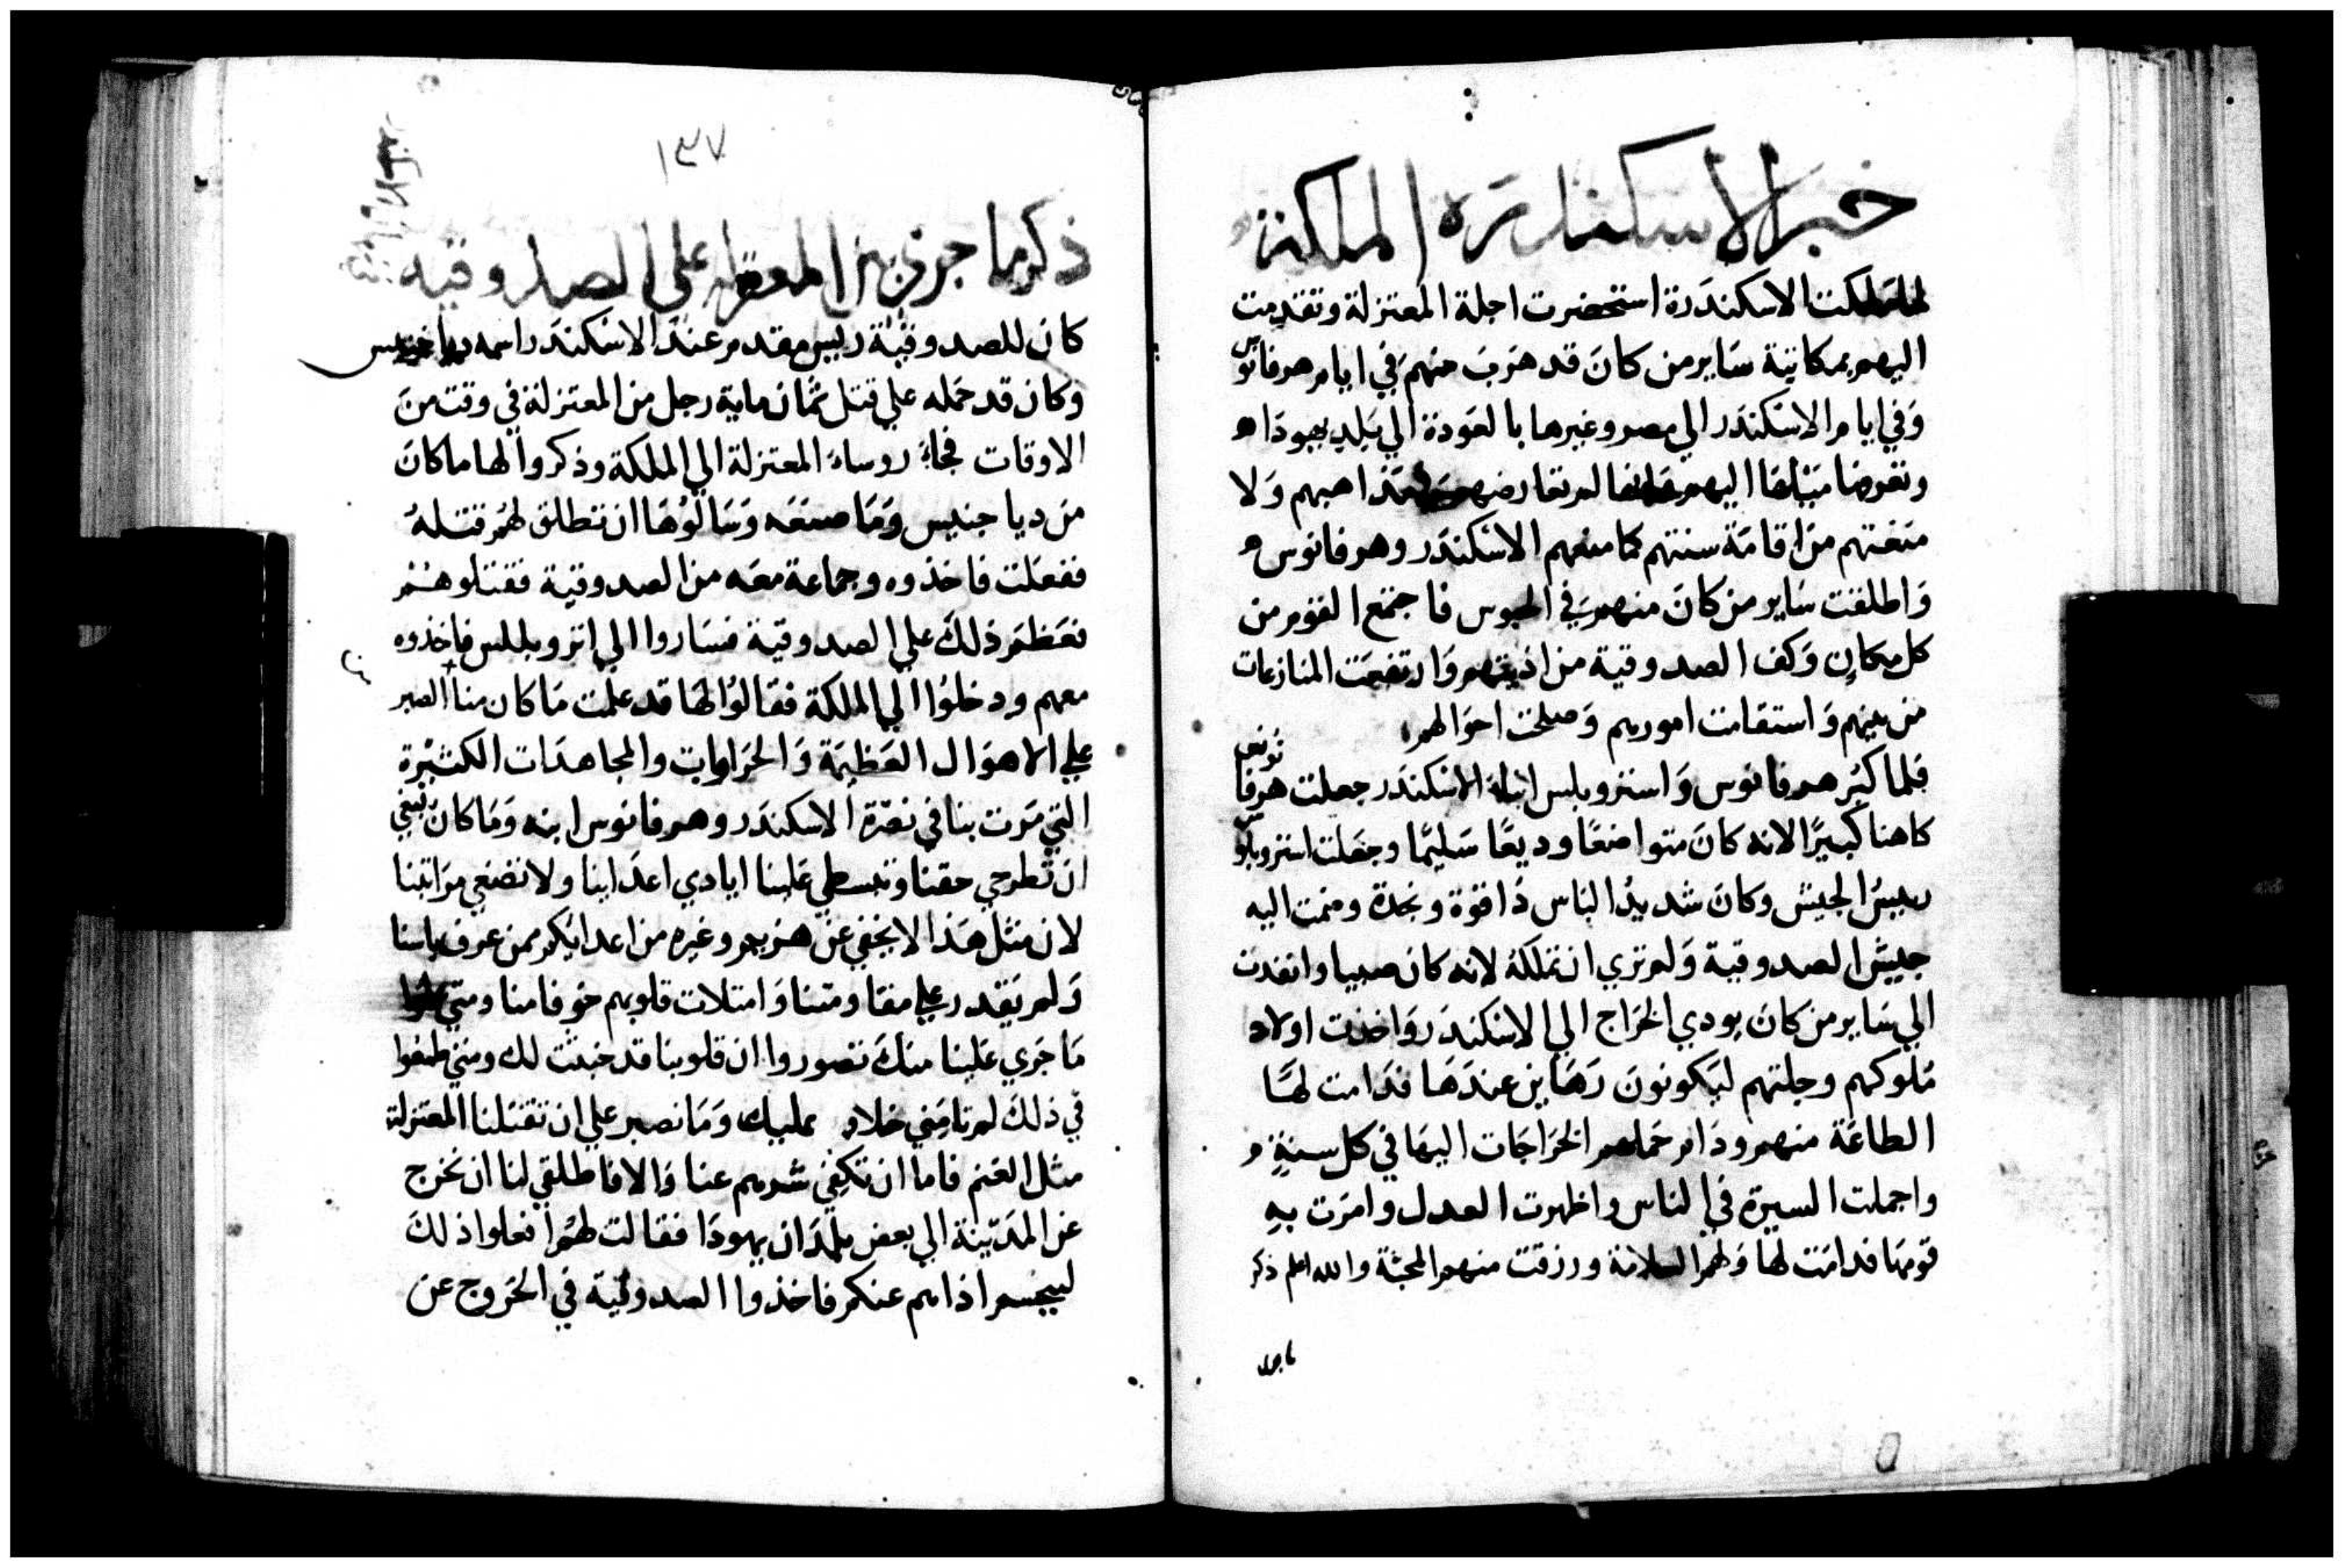 خبر الاسكندره الملكة
لما ملكت الاسكندَرة استحضرت اجلة المعتزلة وتقدمت
اليهم بمكاتبة سَاير من كانَ قد هَربَ منهم في ايام هرفانوس
وَفي ايام الاسكندَر الي مصر وغيرها بالعَودة الي بَلد يهودَا ه
وتعرفهَا ميْلهَا اليهم وانها لم تعارضهم في مذاهبهم وَلا
منعَتهم من اقامَة سنتهم كما منعهم الاسكندَر وهرفانوس ه
وَاطلقت سَاير من كانَ منهم في الحبوس فاجتمع القوم من
كل مكانٍ وَكف الصدوقية من اذيتهم وَارتفعَت المنازعات
من بينهم وَاستقامت امورهم وَصلحت احوَالهم
فلما كبُر هرفانوس وَاسترو بلس ابناء الاسكندَر جعلت هرفانوس
كاهنا كبيرًا لانه كانَ متواضعًا وديعًا سَليمًا وجعَلت استروبلوس
رييسُ الجيش وَكانَ شديدُ الباس ذُا قوة ونجدة وضمت اليه
جيشَ الصدوقية وَلم تري ان تملكهُ لانه كان صبيا وانفدت
الي سَاير من كانَ يودي الخرَاج الي الاسكندَر وَاخذت اولاد
مُلوكهم وجلتهم ليَكونونَ رَهَاين عندَهَا فدَامت لهَا
الطاعَة منهم ودَام حَملهم الخرَاجَات اليهَا في كل سنةٍ ه
واجملت السيرَة في الناس واظهرت العدل وامرَت بهِ
قومهَا فدامَت لهَا وَلهم السلامة ورزقت منهم المحبَّة والله اعلم ذكر
ما جرا
١٣٧
ذكر ما جري من المعتزله علي الصدوقيه
كانَ للصدوقيَّة رييس مقدم عندَ الاسْكندَر اسمه دياجنيس
وكان قد حَمله علي قتل ثمَان ماية رجل من المعتزلة في وقت منَ
الاوقات فجاءَ روساءَ المعتزلة الي الملكة وذكروا لها ما كانَ
من دياجنيس وَمَا صنعَه وَسَالوُهَا ان تطلق لهُم قتلهُ
ففعَلت فاخذوه وجماعة معَه من الصدوقية فقتلوهُم
فعَظم ذلكَ علي الصدوقية فسَاروا الي استروبللس فاخذوه
معهم ودخلوُا الي الملكة فقالوُا لهَا قد علمت مَا كان منا الصبر
علي الاهوَال العَظيمَة وَالحَرابات والمجاهدَات الكثيْرة
التي مَرت بنا في نصْرَة الاسكندَر وهرفانوس ابنه وَمَا كانَ ينبغي
ان تطرحي حقنا وتبسطي عَلينا ايادي اعدَاينا ولا تضَعي مَرَاتبنا
لان مثل هَذا لا يخفي عَن هزيم وغيره من اعدايكم ممن عرف باسنا
وَلم يَقدر علي مقاومَتنا وَامتلات قلوبهم خوفا منا ومتي علموا
مَا جَري عَلينا منكَ تصوروا ان قلوبنا قد خبثت لك ومتي طمعوا
في ذلكَ لم تامَني خلاف عليك وَمَا نصبر علي ان تقتلنا المعتزلة
مثل الغنم فاما ان تكفي شرهم عنا وَالا فاطلقي لنا ان نخرج
عن المدَينة الي بعض بلدَان يهودَا فقالت لهُم افعلوا ذلكَ
ليجسم اذاهم عنكم فاخذوا الصدوقية في الخروج عن